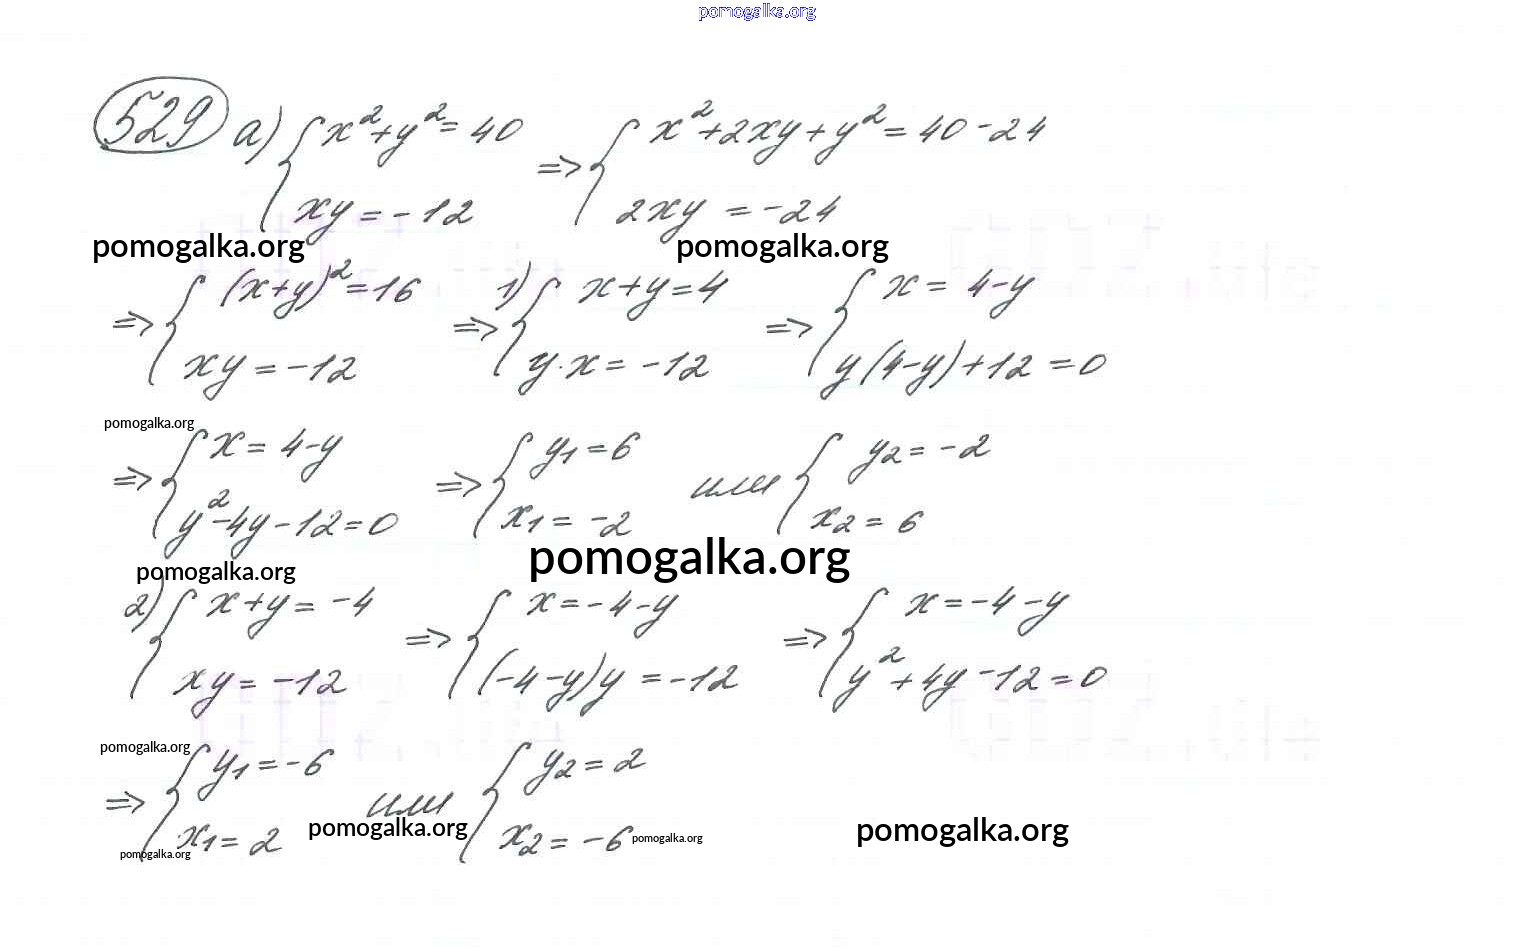 pomogalka.org
529 а) { x²+y²=40 => { x²+2xy+y²=40-24
xy=-12 2xy=-24
pomogalka.org pomogalka.org
=> { (x+y)²=16 => 1) { x+y=4 => { x=4-y
xy=-12 y·x=-12 y(4-y)+12=0
pomogalka.org
=> { x=4-y => { y₁=6 или { y₂=-2
y²-4y-12=0 x₁=-2 x₂=6
pomogalka.org pomogalka.org
2) { x+y=-4 => { x=-4-y => { x=-4-y
xy=-12 (-4-y)y=-12 y²+4y-12=0
pomogalka.org
=> { y₁=-6 или { y₂=2
x₁=2 pomogalka.org x₂=-6 pomogalka.org pomogalka.org
pomogalka.org